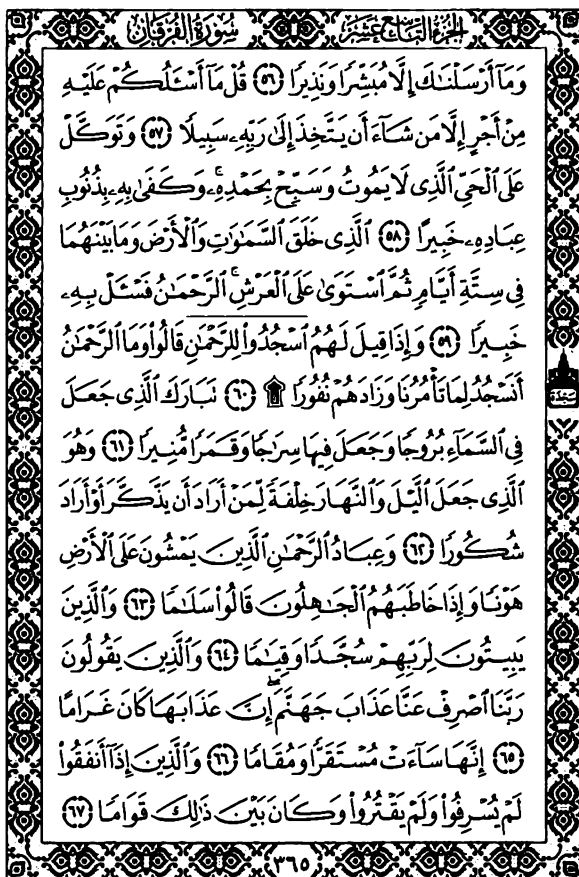 الجزء التاسع عشر سورة الفرقان
وَمَآ أَرْسَلْنَٰكَ إِلَّا مُبَشِّرًا وَنَذِيرًا ﴿٥٦﴾ قُلْ مَآ أَسْـَٔلُكُمْ عَلَيْهِ
مِنْ أَجْرٍ إِلَّا مَن شَآءَ أَن يَتَّخِذَ إِلَىٰ رَبِّهِۦ سَبِيلًا ﴿٥٧﴾ وَتَوَكَّلْ
عَلَى ٱلْحَىِّ ٱلَّذِى لَا يَمُوتُ وَسَبِّحْ بِحَمْدِهِۦ ۚ وَكَفَىٰ بِهِۦ بِذُنُوبِ
عِبَادِهِۦ خَبِيرًا ﴿٥٨﴾ ٱلَّذِى خَلَقَ ٱلسَّمَٰوَٰتِ وَٱلْأَرْضَ وَمَا بَيْنَهُمَا
فِى سِتَّةِ أَيَّامٍ ثُمَّ ٱسْتَوَىٰ عَلَى ٱلْعَرْشِ ۚ ٱلرَّحْمَٰنُ فَسْـَٔلْ بِهِۦ
خَبِيرًا ﴿٥٩﴾ وَإِذَا قِيلَ لَهُمُ ٱسْجُدُوا۟ لِلرَّحْمَٰنِ قَالُوا۟ وَمَا ٱلرَّحْمَٰنُ
أَنَسْجُدُ لِمَا تَأْمُرُنَا وَزَادَهُمْ نُفُورًا ۩ ﴿٦٠﴾ تَبَارَكَ ٱلَّذِى جَعَلَ
سجدة
فِى ٱلسَّمَآءِ بُرُوجًا وَجَعَلَ فِيهَا سِرَٰجًا وَقَمَرًا مُّنِيرًا ﴿٦١﴾ وَهُوَ
ٱلَّذِى جَعَلَ ٱلَّيْلَ وَٱلنَّهَارَ خِلْفَةً لِّمَنْ أَرَادَ أَن يَذَّكَّرَ أَوْ أَرَادَ
شُكُورًا ﴿٦٢﴾ وَعِبَادُ ٱلرَّحْمَٰنِ ٱلَّذِينَ يَمْشُونَ عَلَى ٱلْأَرْضِ
هَوْنًا وَإِذَا خَاطَبَهُمُ ٱلْجَٰهِلُونَ قَالُوا۟ سَلَٰمًا ﴿٦٣﴾ وَٱلَّذِينَ
يَبِيتُونَ لِرَبِّهِمْ سُجَّدًا وَقِيَٰمًا ﴿٦٤﴾ وَٱلَّذِينَ يَقُولُونَ
رَبَّنَا ٱصْرِفْ عَنَّا عَذَابَ جَهَنَّمَ ۖ إِنَّ عَذَابَهَا كَانَ غَرَامًا
﴿٦٥﴾ إِنَّهَا سَآءَتْ مُسْتَقَرًّا وَمُقَامًا ﴿٦٦﴾ وَٱلَّذِينَ إِذَآ أَنفَقُوا۟
لَمْ يُسْرِفُوا۟ وَلَمْ يَقْتُرُوا۟ وَكَانَ بَيْنَ ذَٰلِكَ قَوَامًا ﴿٦٧﴾
٣٦٥